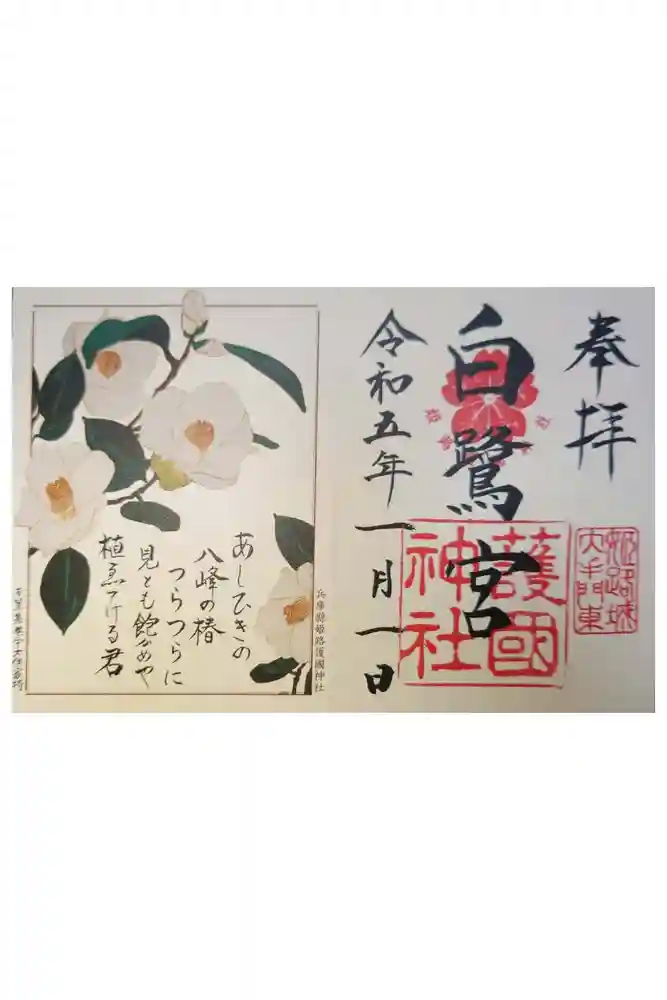 奉拝
白鷺宮
護國神社
姫路城大手門東
令和五年一月一日
兵庫縣姫路護國神社
あしひきの
八峰の椿
つらつらに
見とも飽かめや
植ゑてける君